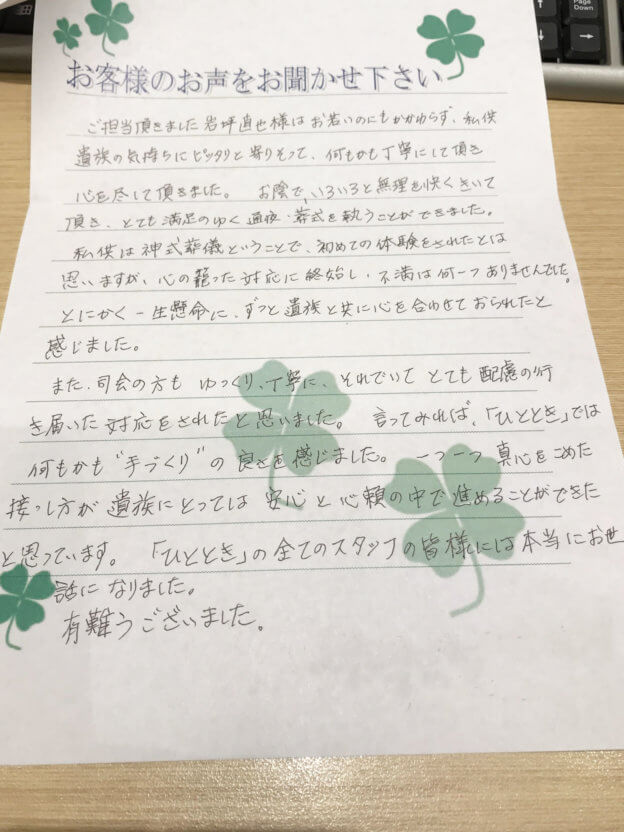 お客様のお声をお聞かせ下さい
ご担当頂きました岩坪直也様はお若いのにもかかわらず、私供
遺族の気持ちにピッタリと寄りそって、何もかも丁寧にして頂き
心を尽して頂きました。 お陰で、いろいろと無理を快くきいて
頂き、とても満足のゆく通夜・葬式を執うことができました。
私供は神式葬儀ということで、初めての体験をされたとは
思いますが、心の籠った対応に終始し、不満は何一つありませんでした。
とにかく一生懸命に、ずっと遺族と共に心を合わせておられたと
感じました。
また、司会の方も ゆっくり、丁寧に、それでいて とても 配慮の行
き届いた 対応をされたと思いました。 言ってみれば、「ひととき」では
何もかも "手づくり" の 良さを感じました。 一つ一つ 真心をこめた
接っし方が 遺族にとっては 安心 と 心頼の中で進めることができた
と思っています。 「ひととき」の全てのスタッフの皆様には本当にお世
話になりました。
有難うございました。
Page
Down